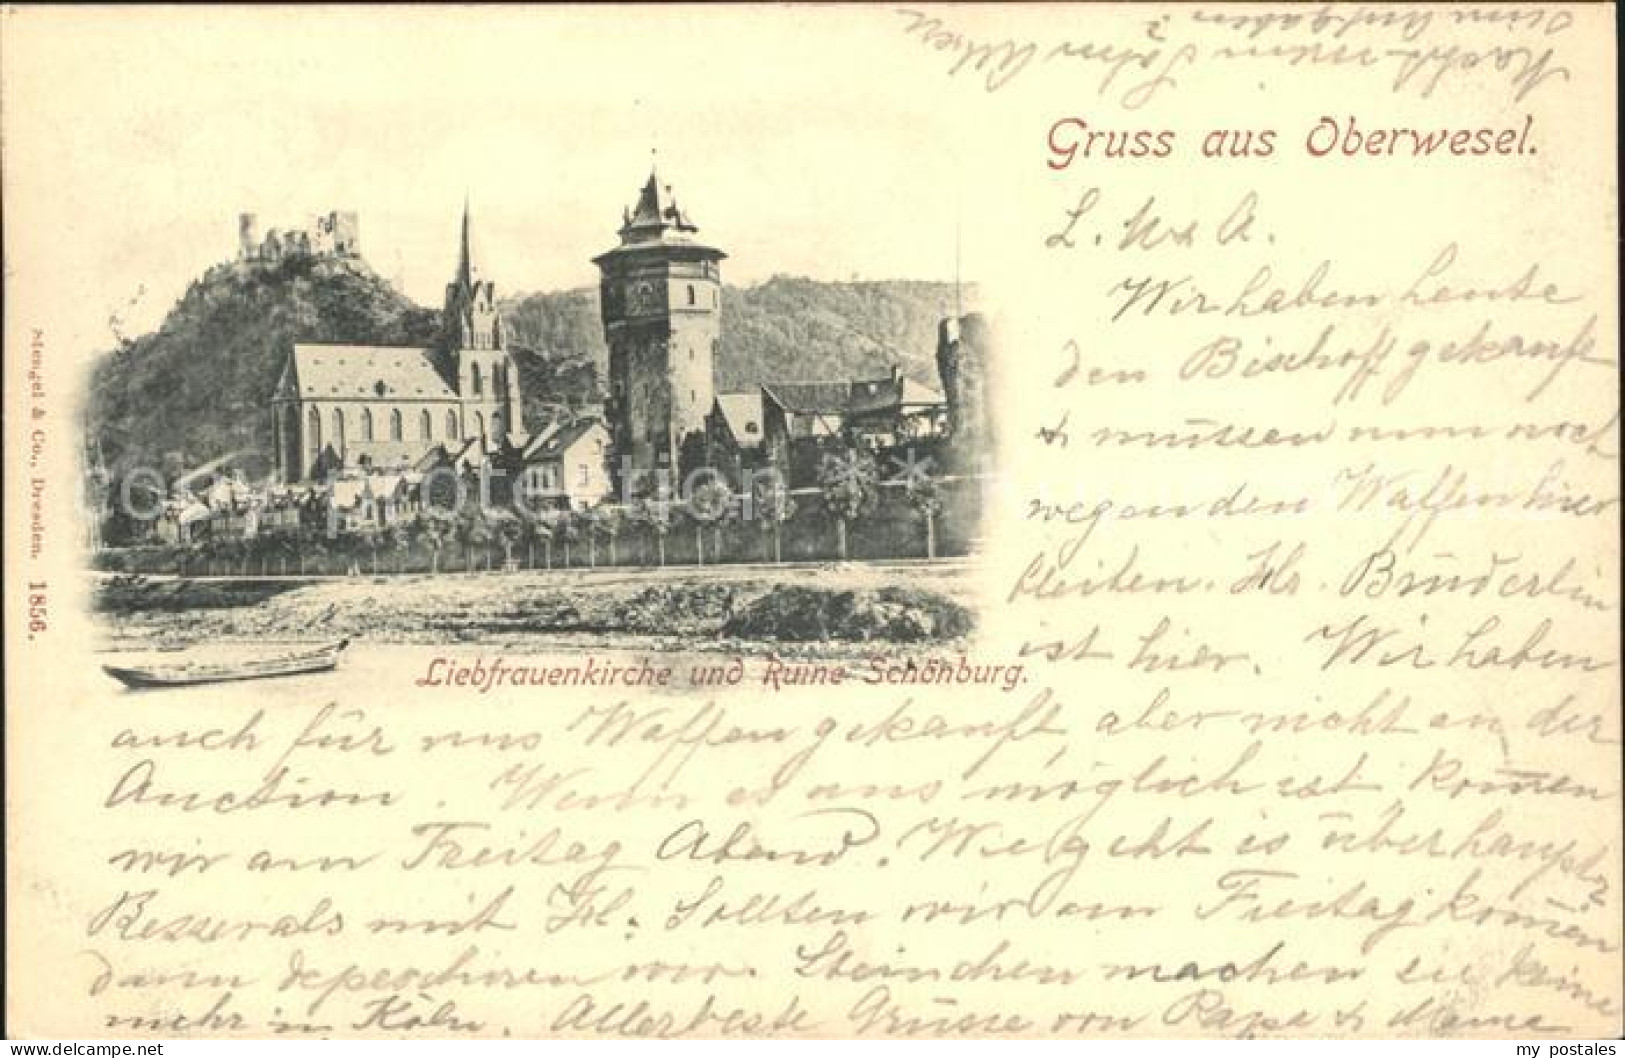 Gruss aus Oberwesel.
L. M & A.
Wir haben heute
den Bischoff gekauft
& müssen nun noch
wegen den Waffen hier
bleiben. Hr. Brüderlin
ist hier. Wir haben
Liebfrauenkirche und Ruine Schönburg.
auch für uns Waffen gekauft aber nicht an der
Auction. Wenn es uns möglich ist kommen
wir am Freitag Abend. Wie geht es überhaupt
Besser als mit Hl. Sollten wir am Freitag kommen
dann depeschiren wir. Steinchen machen sie keine
mehr in Köln. Allerbeste Grüsse von Papa & Mama
Macht mein Sohn
seine Aufgaben?
Mengel & Co., Dresden. 1856.
protection
my postales